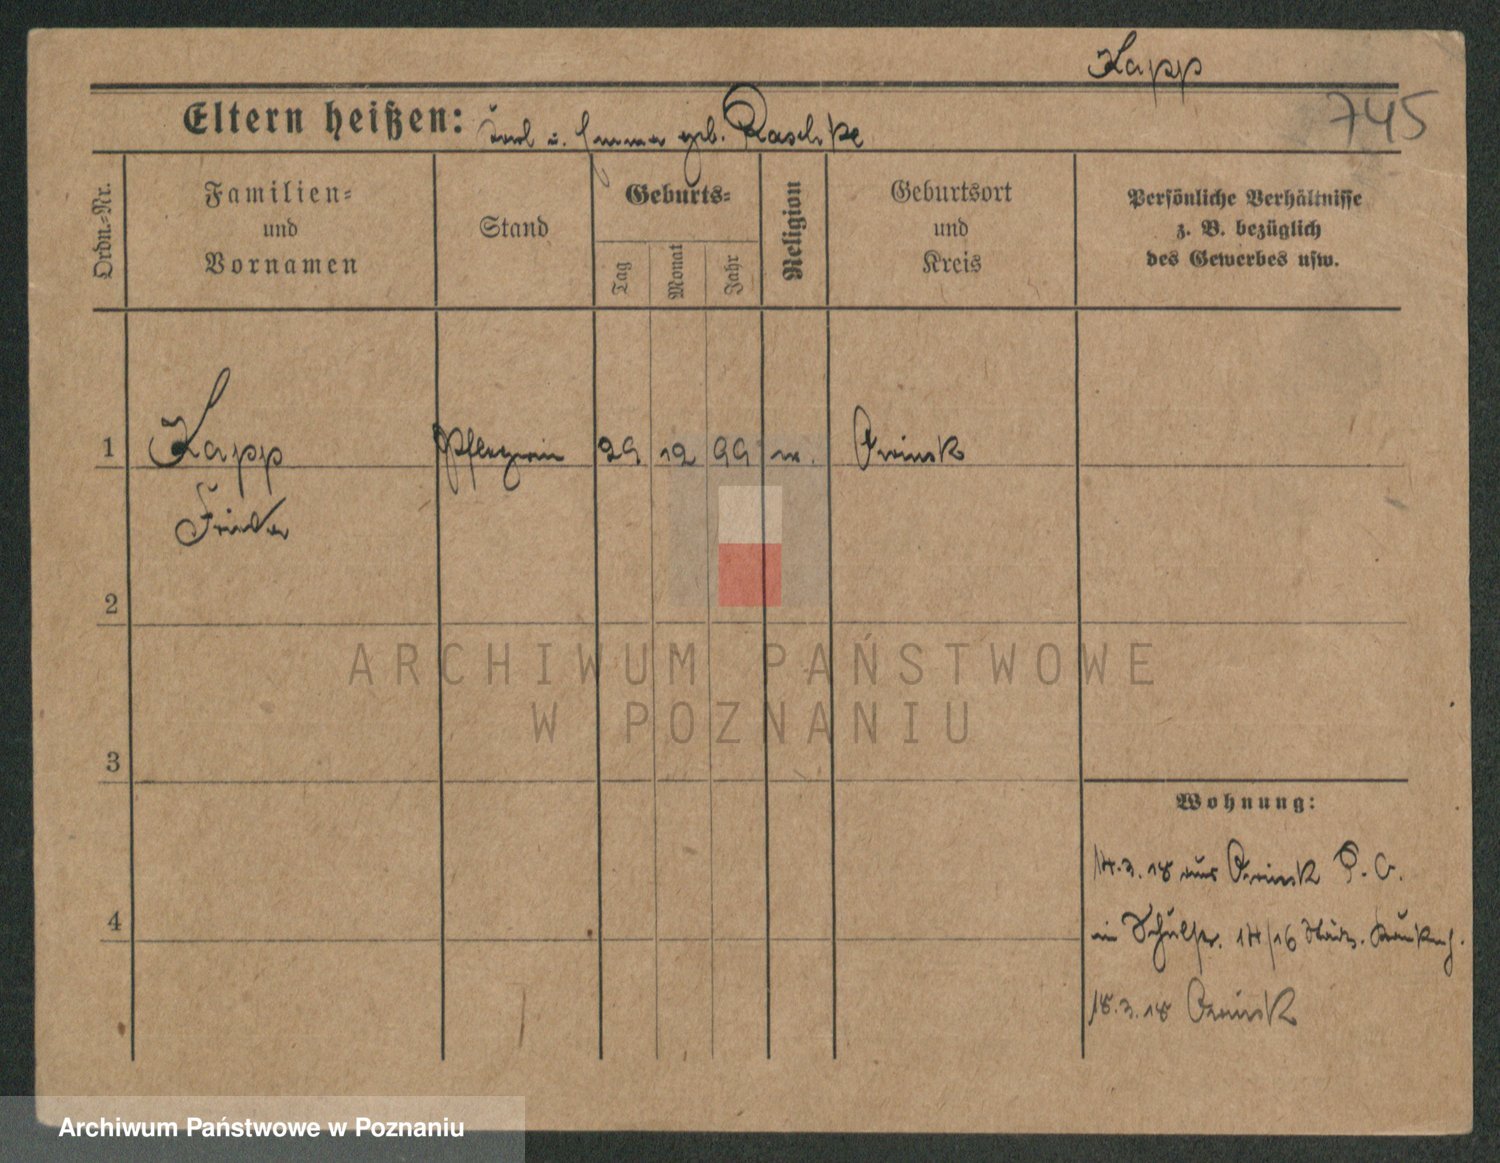 Kapp
745
Eltern heißen: u. Emma geb. Raschke
Ordn.=Nr.
Familien=
und
Vornamen
Stand
Geburts=
Tag
Monat
Jahr
Religion
Geburtsort
und
Kreis
Persönliche Verhältnisse
z. B. bezüglich
des Gewerbes usw.
1
Kapp
Pflegerin
29 12 99
Frieda
2
ARCHIWUM PAŃSTWOWE
W POZNANIU
3
Wohnung:
14.3.18 aus P.
in Schulstr. 14/16 Städt. Krankenh.
4
18.3.18
Archiwum Państwowe w Poznaniu